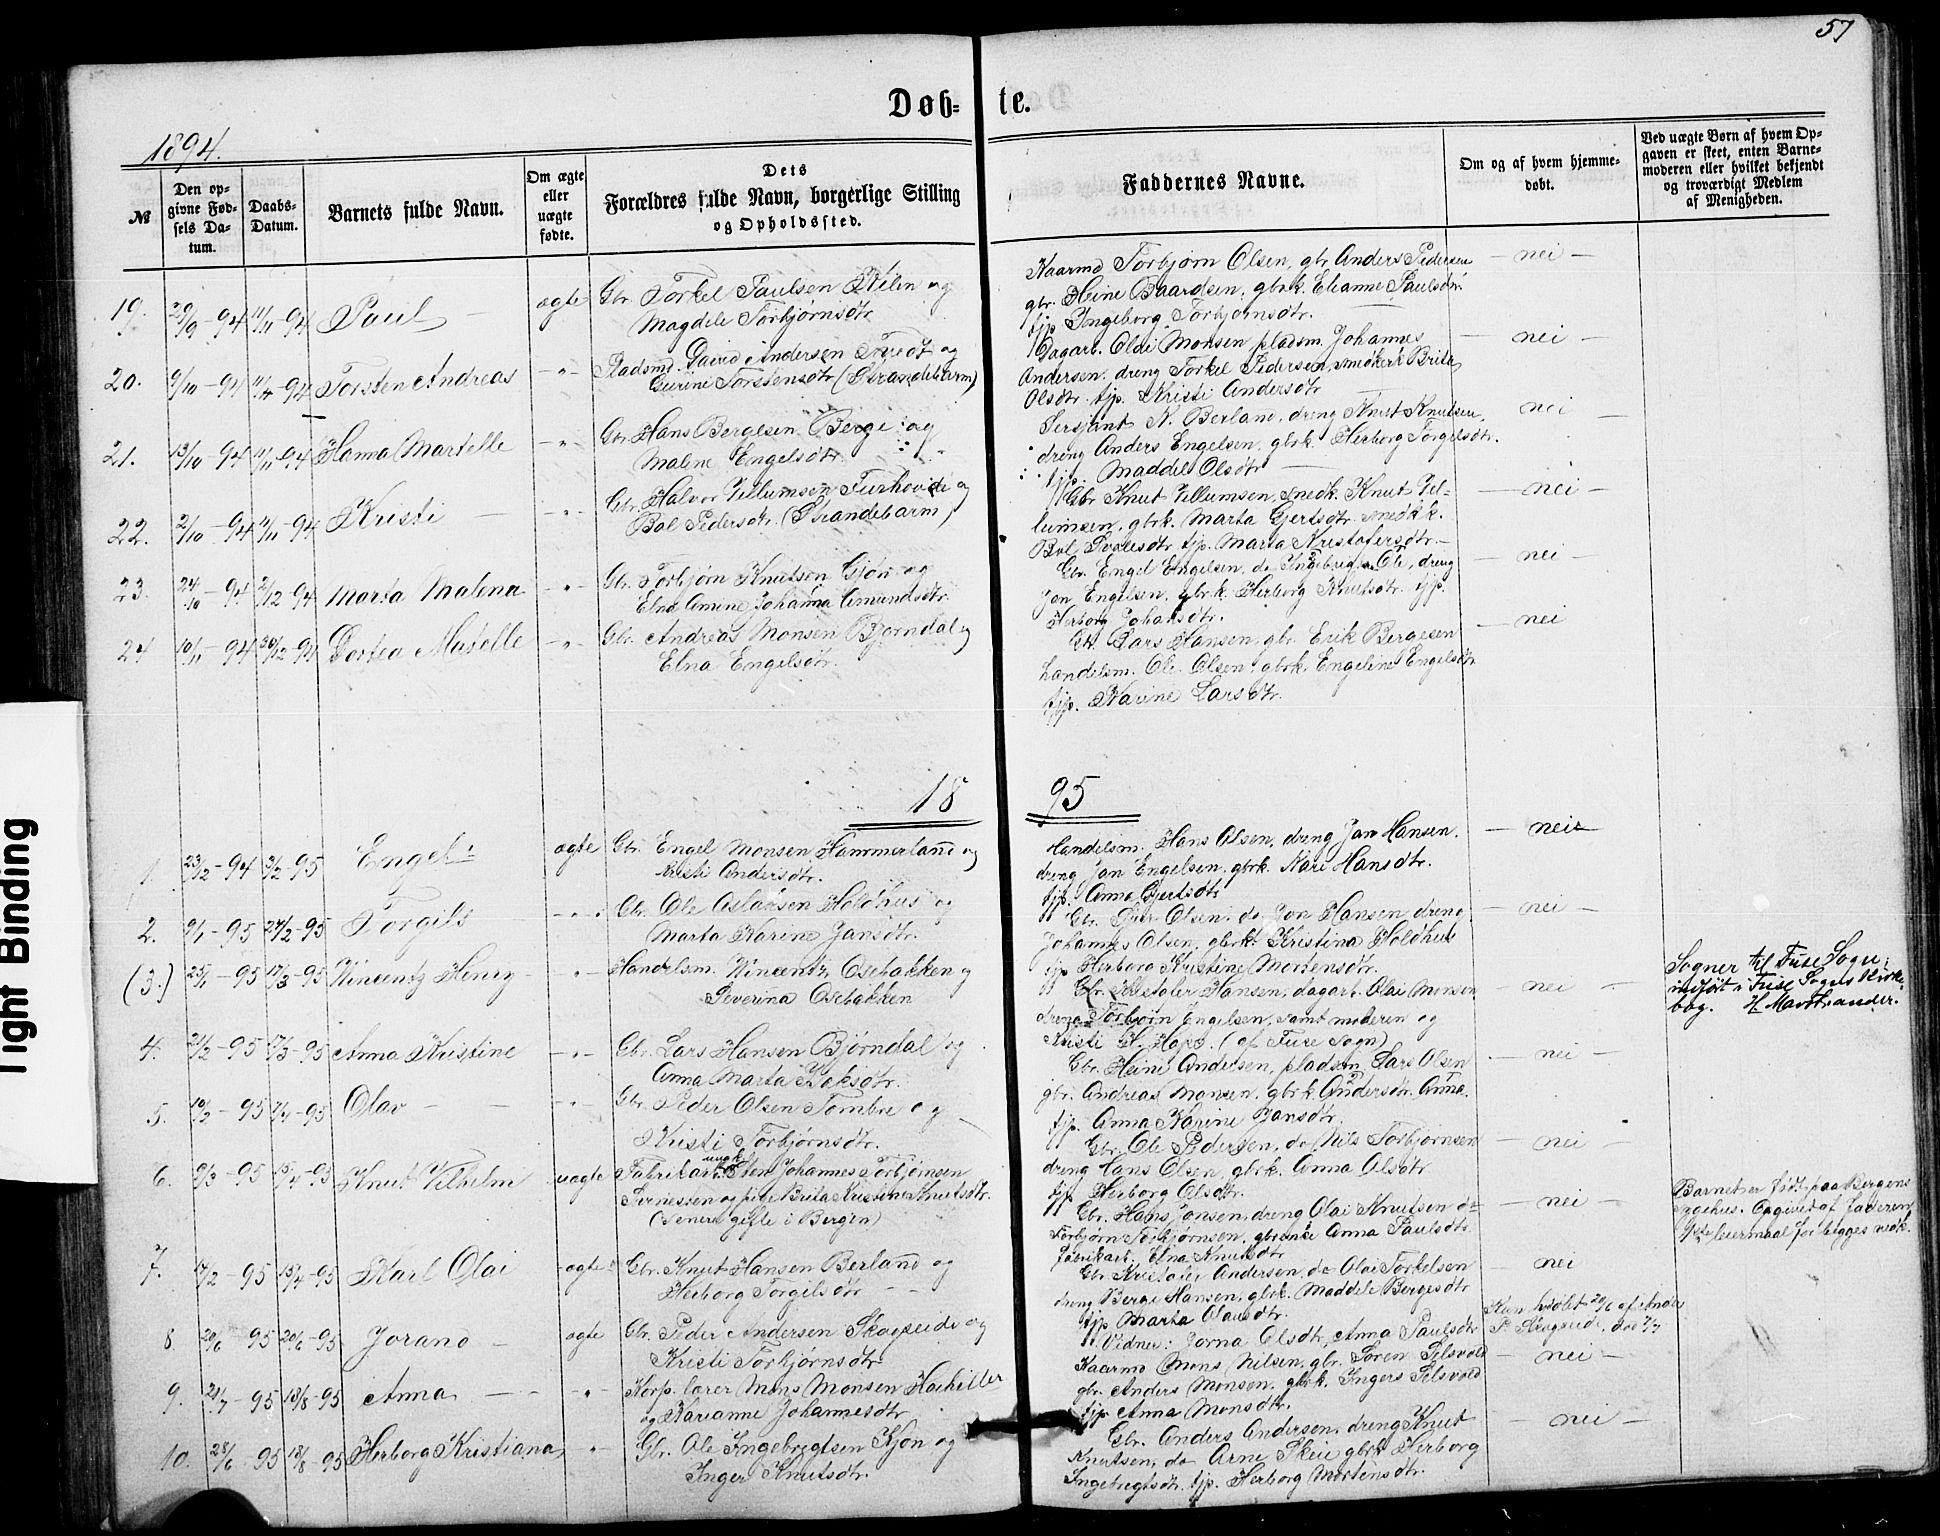 57
Døb- te.
1894.
№
Den opgivne Fødsels Datum.
Daabs-Datum.
Barnets fulde Navn.
Om ægte eller uægte fødte.
Dets Forældres fulde Navn, borgerlige Stilling og Opholdssted.
Faddernes Navne.
Om og af hvem hjemmedøbt.
Ved uægte Børn af hvem Opgaven er skeet, enten Barnemoderen eller hvilket bekjendt og troværdigt Medlem af Menigheden.
19. 29/9-94 11/11-94 Paul — ægte Gbr. Torkel Paulsen og
Magdele Torbjørnsdtr.
Kaarmd Torbjørn Olsen, gbr Anders Pedersen
gbr. Heine Baardsen, gbrk. Elianne Paulsdtr.
tjp Ingeborg Torbjørnsdtr.
— nei —
20. 9/10-94 11/11-94 Torsten Andreas -"- Pladsmd. David Andersen Tvedt og
Gurine Torstensdtr (Strandebarm)
Dagarb. Olai Monsen, pladsm. Johannes
Andersen. dreng Torkel Pedersen, snedkerk Brita
Olsdtr. tjp. Kristi Andersdtr
— nei —
21. 13/10-94 11/11-94 Hanna Martelle -"- Gbr. Hans Bergesen Berge og
Malene Engelsdtr.
Sersjant N. Berland, dreng Knut Knutsen,
dreng Anders Engelsen, gbrk. Herborg Torgilsdtr.
tjp. Maddel Olsdtr —
nei —
22. 2/10-94 11/11-94 Kristi — -"- Gbr. Halvor Villumsen Furhovde og
Bol Pedersdtr. (Strandebarm)
Gbr Knut Villumsen, snedk. Knut Vil-
lumsen, gbrk. Marta Gjertsdtr. snedkk.
Bol tjp. Marta Kristofersdtr. —
— nei —
23. 24/10-94 2/12-94 Marta Malena -"- Gbr. Torbjørn Knutsen Gjøn og
Elna Amine Johanna Amundsdtr.
Gbr. Engel Engelsen, do Ingebrigt Ole, dreng
Jon Engelsen, gbrk. Herborg Knutsdtr. tjp.
Herborg Johansdtr.
— nei —
24 10/11-94 30/12-94 Dortea Matelle -"- Gbr. Andreas Monsen Bjørndal og
Elna Engelsdtr.
Gbr. Lars Hansen, gbr Erik Bergesen
handelsm. Ole Olsen, gbrk. Engeline Engelsdtr
tjp. Karine Larsdtr.
— nei
18 95
1. 23/12-94 3/2-95 Engel ægte Gbr. Engel Monsen Hammerland og
Kristi Andersdtr.
Handelsm. Hans Olsen, dreng Jan Hansen,
dreng Jan Engelsen, gbrk. Kari Hansdtr.
tjp. Anna Gjertsdtr
— nei
2. 9/1-95 24/2-95 Torgils -"- Gbr. Ole Aslaksen Holdhus og
Marta Karine Jansdtr.
Gbr. Olsen, do Jon Hansen, dreng
Johannes Olsen, gbrk. Kristina Holdhus
tjp Herborg Kristine Mortensdtr.
— nei —
(3.) 25/1-95 17/3-95 Vincentz Henry -"- Handelsm. Vincentz Osebakken og
Severina Osebakken
Gbr. Kristofer Hansen, dagarb. Olai Monsen
dreng Torbjørn Engelsen, samt moderen og
Kristi H. Hope. (af Fuse Sogn)
— nei —
Sogner til Fuse Sogn;
indført i Fuse Sogns Kirke-
bog. H Marthander.
4. 21/2-95 17/3-95 Anna Kristine -"- Gbr. Lars Hansen Bjørndal og
Anna Marta
Gbr. Heine Andersen, pladsm Lars Olsen
gbr. Andreas Monsen, gbrk. Andersdtr. Anna.
tjp. Anna Karine Jansdtr.
— nei —
5. 10/2-95 7/4-95 Olav — — -"- Gbr. Peder Olsen Tombre og
Kristi Torbjørnsdtr.
Gbr. Ole Pedersen, do Nils Torbjørnsen
dreng Hans Olsen, gbrk. Anna Olsdtr
tjp Herborg Olsdtr.
— nei —
6. 9/3-95 15/4-95 Knut Vilhelm uægte Fabrikarb. ungk. Sten Johannes Torbjørnsen
og pige Brita Kristine Knutsdtr.
(senere gifte i Bergen)
Gbr. Hans Jonsen, dreng Olai Knutsen do
Torbjørn Torbjørnsen, gbrenke Anna Paulsdtr
fabrikarb. Elna Knutsdtr
— nei —
Barnet er født paa Bergens
Sygehus. Opgivet af faderen
1ste leiermaal for begges vedk.
7. 17/2-95 15/4-95 Karl Olai ægte Gbr. Knut Hansen Berland og
Herborg Torgilsdtr
Gbr Kristofer Andersen, do Olai Torkelsen
dreng Berge Hansen, gbrk. Maddele Bergesdtr
tjp Marta Olausdtr.
— nei
8 20/6-95 20/6-95 Jorand — ægte Gbr. Peder Andersen Skogseide og
Kristi Torbjørnsdtr
Vidner: Jorna Olsdtr, Anna Paulsdtr
20/6 af Anders
P. Skogseide, død 7/7
9. 21/7-95 18/8-95 Anna — -"- Korp. lærer Mons Monsen
og Karianne Johannesdtr
Kaarmd Mons Nilsen, gbr. Søren
gbr. Anders Monsen. gbrk. Ingers
tjp Anna Monsdtr.
— nei —
10. 28/6-95 18/8-95 Herborg Kristiana " Gbr. Ole Ingebregtsen Gjøn og
Inger Knutsdtr.
Gbr. Anders Andersen, dreng Knut
Knutsen, do Arne Skeie gbrk Herborg
Ingebregtsdtr. tjp. Herborg Mortensdtr.
— nei —
Tight Binding